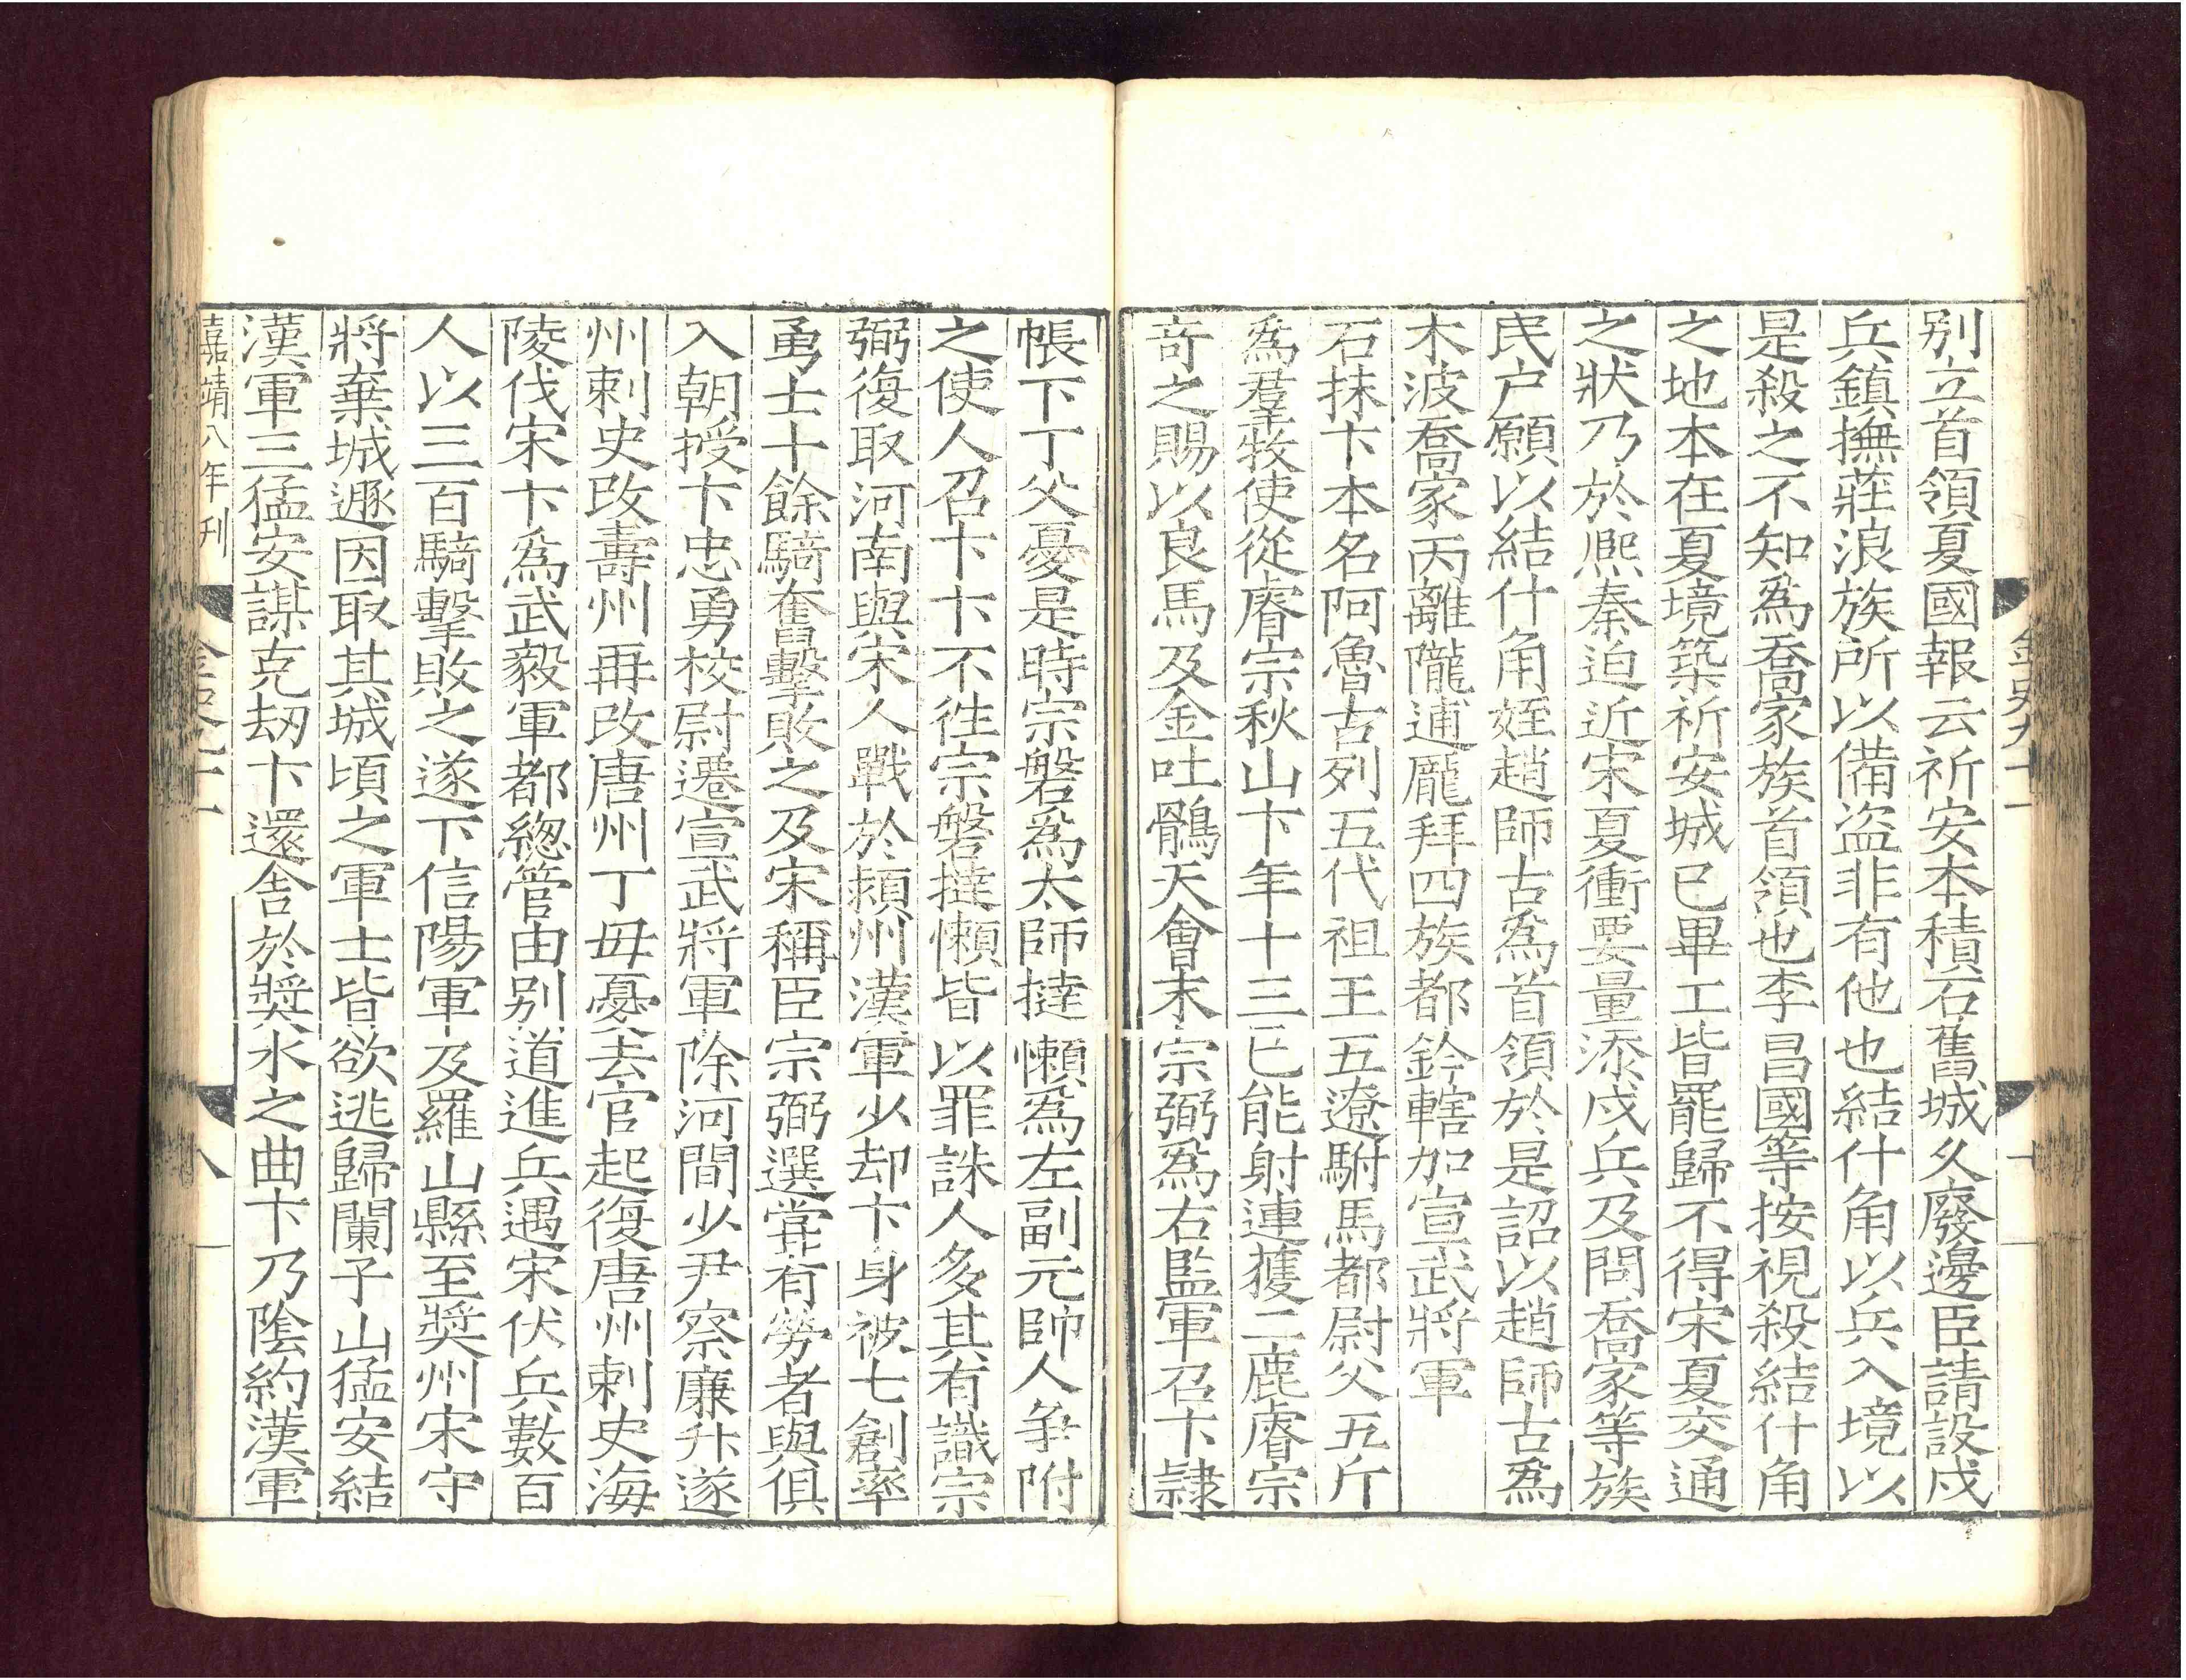 金史九十一
十
别立首領夏國報云祈安本積石舊城久廢邊臣請設戍
兵鎮撫莊浪族所以備盜非有他也結什角以兵入境以
是殺之不知爲喬家族首領也李昌國等按視殺結什角
之地本在夏境築祈安城已畢工皆罷歸不得宋夏交通
之狀乃於熈秦迫近宋夏衝要量添戍兵及問喬家等族
民户願以結什角姪趙師古爲首領於是詔以趙師古爲
木波喬家丙離隴逋龎拜四族都鈐轄加宣武將軍
石抹卞本名阿魯古列五代祖王五遼駙馬都尉父五斤
爲羣牧使從睿宗秋山卞年十三已能射連獲二鹿睿宗
奇之賜以良馬及金吐鶻天會末宗弼爲右監軍召卞隸
帳下丁父憂是時宗磐爲太師撻懶爲左副元帥人争附
之使人召卞卞不徃宗磐撻懶皆以罪誅人多其有識宗
弼復取河南與宋人戰於潁州漢軍少却卞身被七創率
勇士十餘騎奮擊敗之及宋稱臣宗弼選嘗有勞者與俱
入朝授卞忠勇校尉遷宣武將軍除河間少尹察廉升遂
州刺史改壽州再改唐州丁母憂去官起復唐州刺史海
陵伐宋卞爲武毅軍都緫管由别道進兵遇宋伏兵數百
人以三百騎擊敗之遂下信陽軍及羅山縣至奬州宋守
將棄城遯因取其城頃之軍士皆欲逃歸闌子山猛安結
漢軍三猛安謀克刧卞還舍於奬水之曲卞乃隂約漢軍
嘉靖八年刊
金史九十一
八